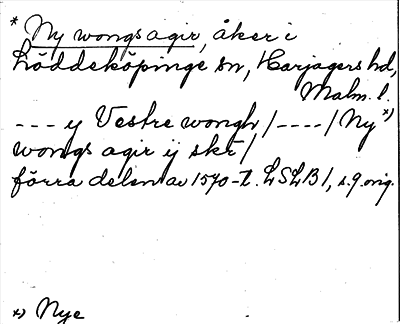 * Ny wongs agir, åker i
Löddeköpinge sn, Harjagers hd,
Malm. l.
--- y Vestre wongh /----/ Ny *)
wongs agir ij skr /
förra delen av 1570-t. LSLB 1, s. 9 orig.
*) Nye